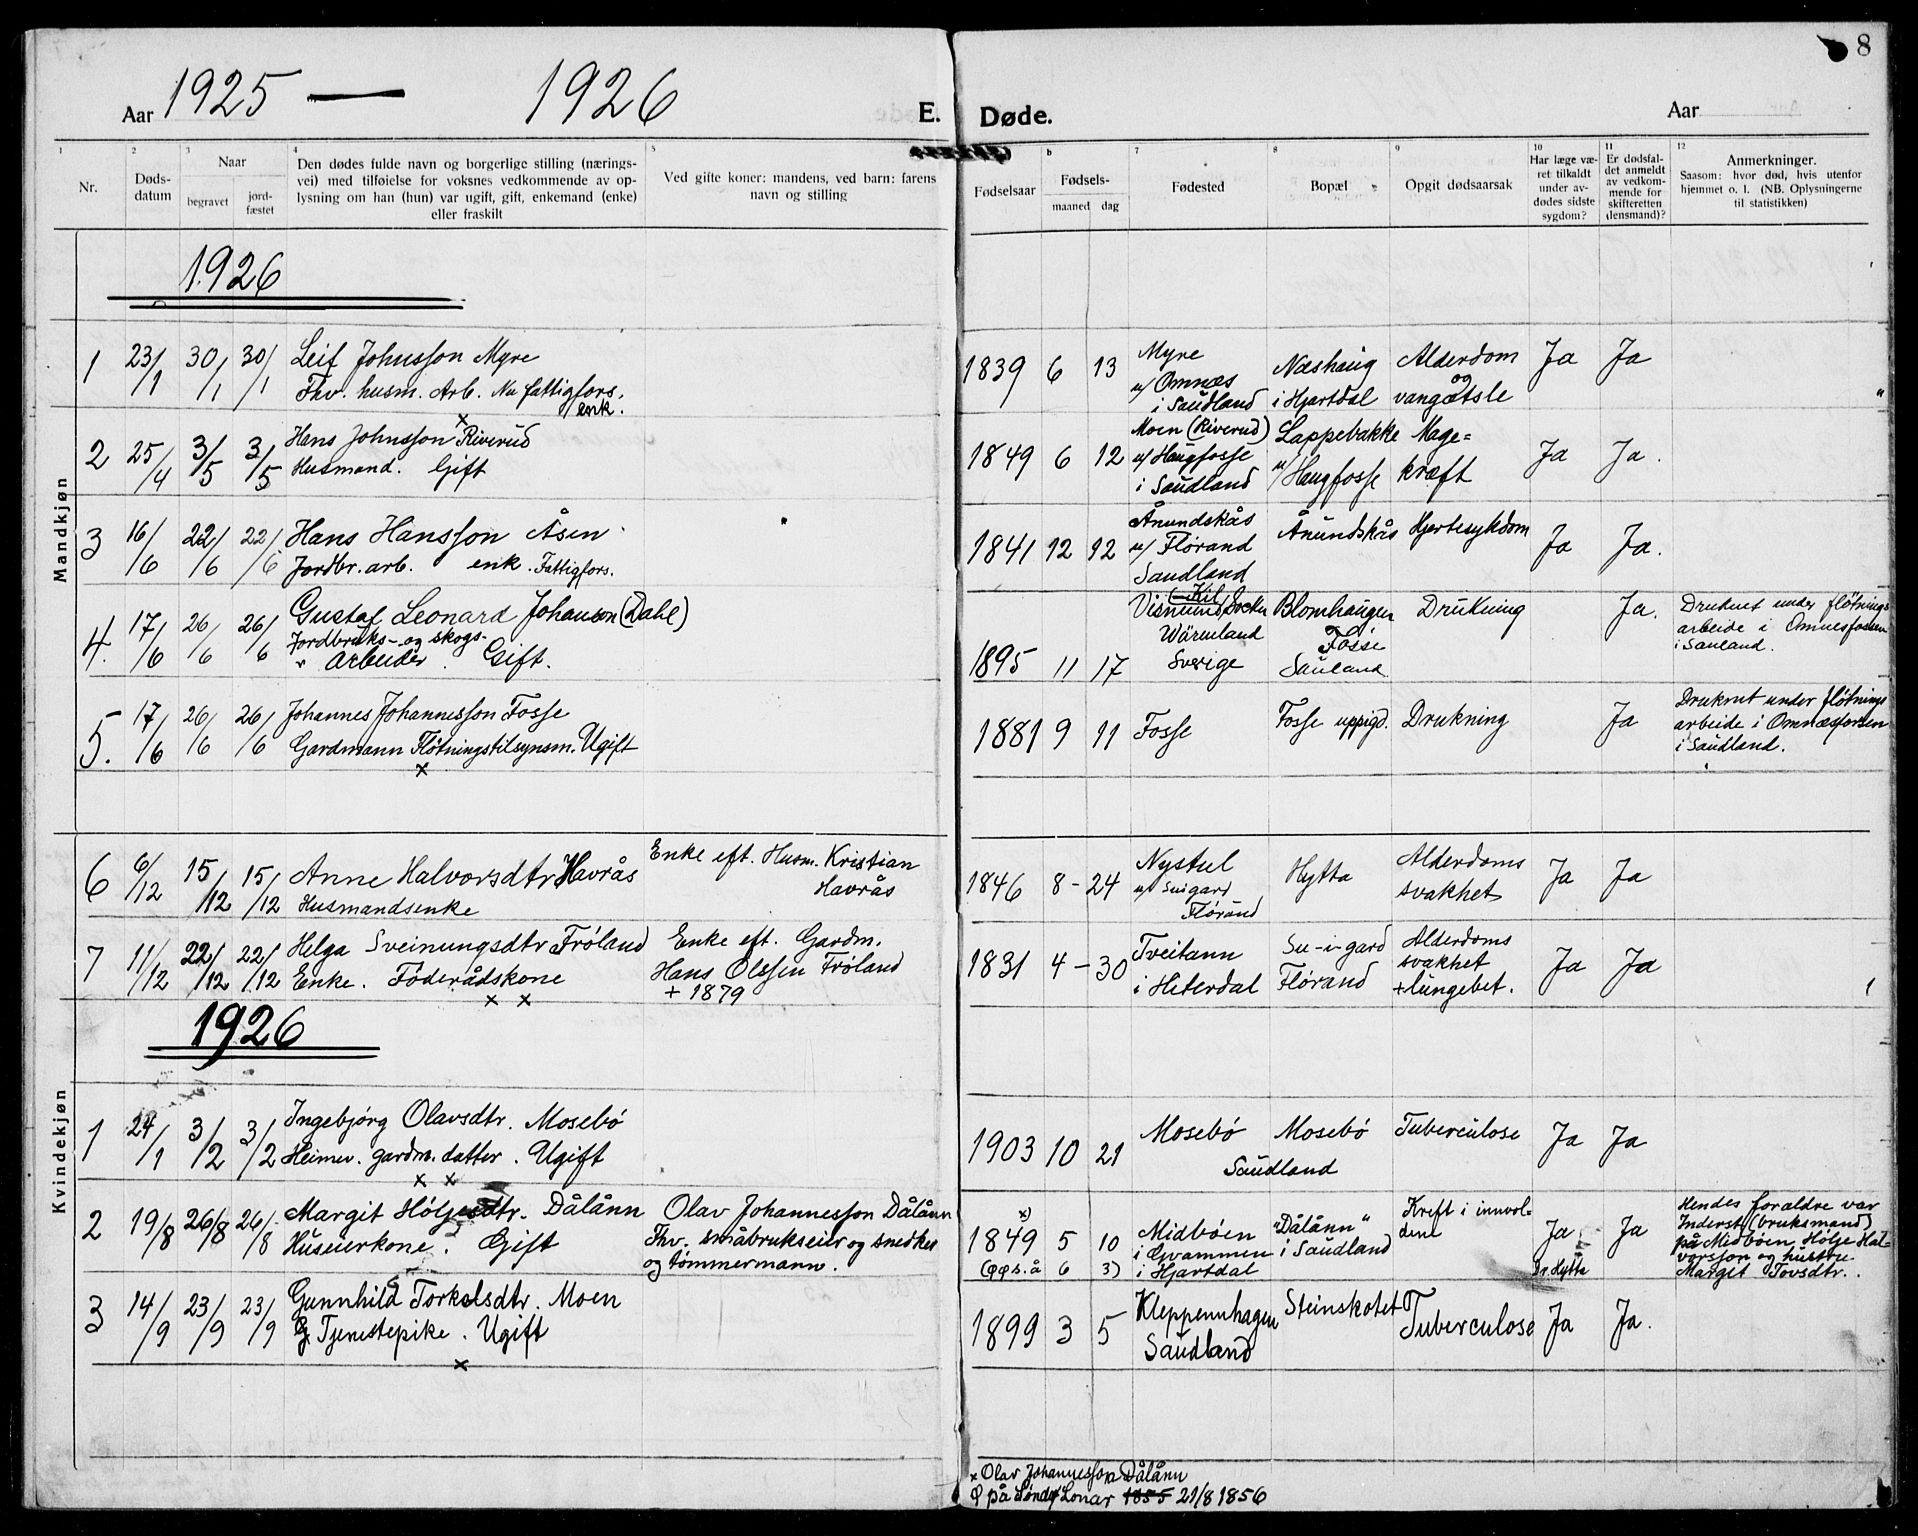 8
Aar 1925 — 1926 E. Døde. Aar
1 2 3 Naar 4 5 b 7 8 9 10 11 12
Nr.
Døds-
datum
begravet
jord-
fæstet
Den dødes fulde navn og borgerlige stilling (nærings-
vei) med tilføielse for voksnes vedkommende av op-
lysning om han (hun) var ugift, gift, enkemand (enke)
eller fraskilt
Ved gifte koner: mandens, ved barn: farens
navn og stilling
Fødselsaar
Fødsels-
maaned dag
Fødested
Bopæl
Opgit dødsaarsak
Har læge væ-
ret tilkaldt
under av-
dødes sidste
sygdom?
Er dødsfal-
det anmeldt
av vedkom-
mende for
skifteretten
(lensmand)?
Anmerkninger.
Saasom: hvor død, hvis utenfor
hjemmet o. l. (NB. Oplysningerne
til statistikken)
Mandkjøn
1926
1 23/1 30/1 30/1 Leif Johnsson Myre
Fhv. husm. Arb. Nu fattigfors.
enk.
1839 6 13
Myre
u/ Omnæs
i Saudland
Næshaug
i Hjartdal
Alderdom
og
vangætsle
Ja Ja
2 25/4 3/5 3/5 Hans Johnsson Riverud
Husmand. Gift
1849 6 12
Moen (Riverud)
u/ Haugfosse
i Saudland
Lappebakke
u/ Haugfosse
Mage=
kræft
Ja Ja.
3 16/6 22/6 22/6 Hans Hansson Åsen
Jordbr. arb. enk. Fattigfors.
1841 12 12
Ånundskås
u/ Flørand
Saudland
Ånundskås
Hjertesykdom
Ja Ja.
4. 17/6 26/6 26/6 Gustaf Leonard Johanson (Dahl)
Jordbruks- og skogs-
Arbeider. Gift.
1895 11 17
Kil
Värmland
Sverige
Blomhaugen
Fosse
Sauland
Drukning
Ja.
Druknet under fløtnings
arbeide i Omnesfossen
i Sauland.
5. 17/6 26/6 26/6 Johannes Johannesson Fosse
Gardmann Fløtningstilsynsm. Ugift
x
1881 9 11
Fosse
Fosse uppigd.
Drukning
Ja
Druknet under fløtnings
arbeide i Omnæsforsen
i Saudland.
6 6/12 15/12 15/12 Anne Halvorsdtr Havrås
Husmandsenke
Enke eft. Husm. Kristian
Havrås
1846 8 - 24
Nystul
Flørånd
Hytta
Alderdoms
svakhet
Ja Ja
7 11/12 22/12 22/12 Helga Sveinungsdtr Frøland
Enke. Føderådskone
x x
Enke eft. Gardm.
Hans Olssen Frøland
+ 1879
1831 4 - 30
Tveitann
i Heterdal
Su-i-gard
Flørand
Alderdoms
svakhet
+ lungebet.
Ja Ja
Kvindekjøn
1926
1 24/1 3/2 3/2 Ingebjørg Olavsdtr. Mosebø
Heimev. gardm. datter. Ugift
x x
1903 10 21
Mosebø
Saudland
Mosebø
Tuberculose
Ja Ja
2 19/8 26/8 26/8 Margit Höljesdtr. Dålånn
Huseierkone. Gift
Olav Johannesson Dålånn
Fhv. småbrukseier og snedker
og tømmermann.
x)
1849 5 10
(ops. å 6 3)
Midbøen
i Gvammen
i Hjartdal
"Dålånn"
i Saudland
Kreft i innvol-
dene
Ja
Dr. Hytta
Ja
Hendes foraldre var
Inderst (bruksmand)
på Midbøen Hølje Hal-
vorsson og hustru
Margit Tovsdtr.
3 14/9 23/9 23/9 Gunnhild Torkelsdtr. Moen
Tjenestepike. Ugift
x
1899 3 5
Kleppennhagen
Saudland
Steinskotet
Tuberculose
Ja Ja.
x Olav Johannesson Dålånn
på Søndre Lonar 1855 21/8 1856